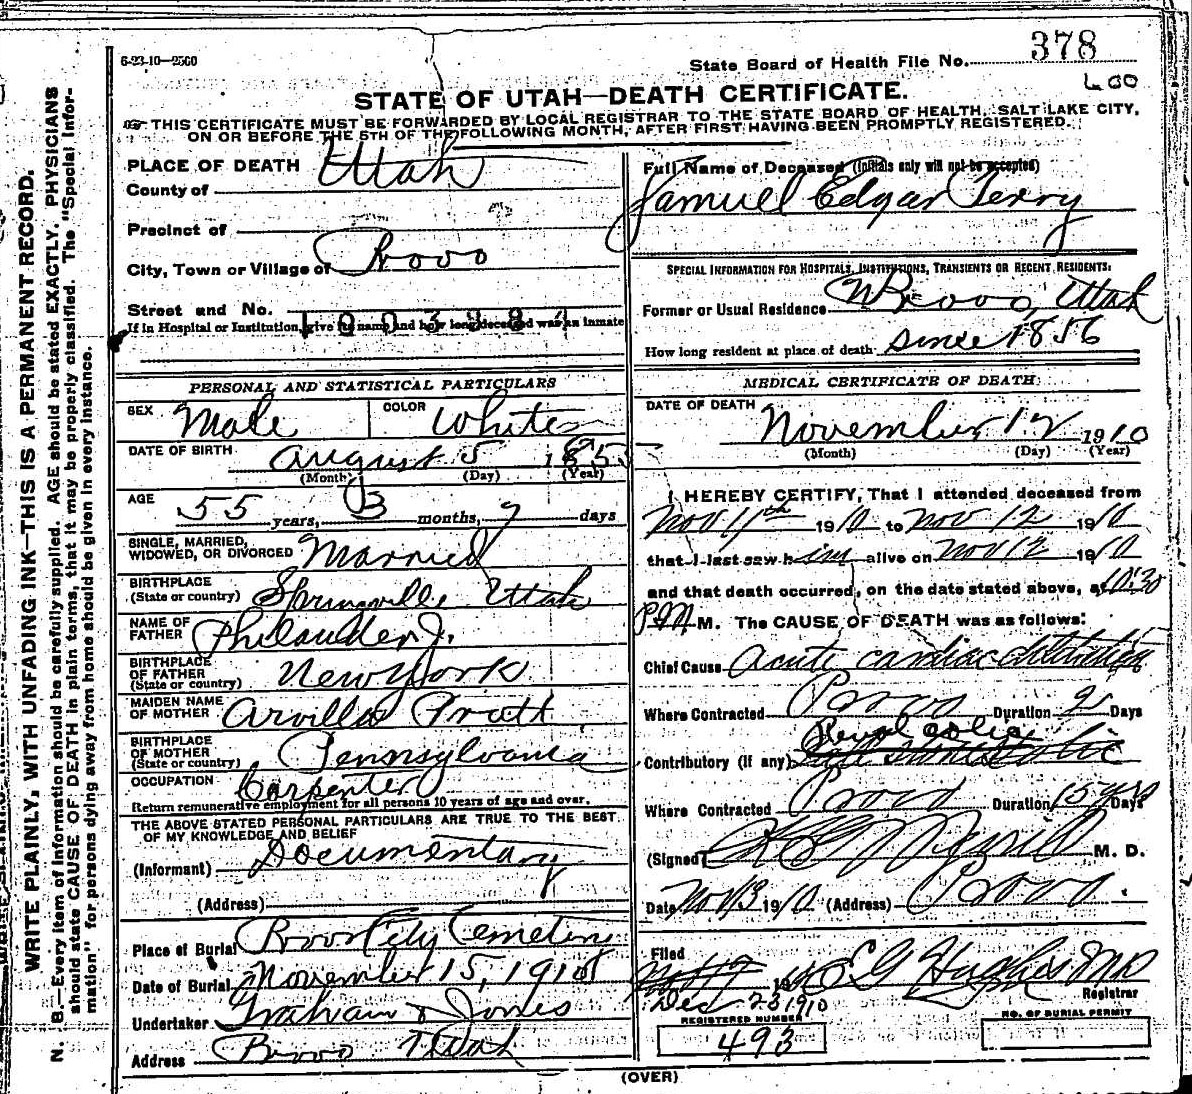 6-23-10—2500
State Board of Health File No. 378
600
STATE OF UTAH—DEATH CERTIFICATE.
THIS CERTIFICATE MUST BE FORWARDED BY LOCAL REGISTRAR TO THE STATE BOARD OF HEALTH, SALT LAKE CITY,
ON OR BEFORE THE 5TH OF THE FOLLOWING MONTH, AFTER FIRST HAVING BEEN PROMPTLY REGISTERED.
WRITE PLAINLY, WITH UNFADING INK—THIS IS A PERMANENT RECORD.
N. B.—Every item of information should be carefully supplied. AGE should be stated EXACTLY. PHYSICIANS
should state CAUSE OF DEATH in plain terms, that it may be properly classified. The "Special Infor-
mation" for persons dying away from home should be given in every instance.
PLACE OF DEATH
County of Utah
Precinct of
City, Town or Village of Provo
Street and No.
If in Hospital or Institution, give its name and how long deceased was an inmate
PERSONAL AND STATISTICAL PARTICULARS
SEX Male COLOR White
DATE OF BIRTH August 5 1855
(Month) (Day) (Year)
AGE 55 years, 3 months, 7 days
SINGLE, MARRIED,
WIDOWED, OR DIVORCED Married
BIRTHPLACE
(State or country) Springville, Utah
NAME OF
FATHER Philander J.
BIRTHPLACE
OF FATHER
(State or country) New York
MAIDEN NAME
OF MOTHER Arvilla Pratt
BIRTHPLACE
OF MOTHER
(State or country) Pennsylvania
OCCUPATION Carpenter
Return remunerative employment for all persons 10 years of age and over.
THE ABOVE STATED PERSONAL PARTICULARS ARE TRUE TO THE BEST
OF MY KNOWLEDGE AND BELIEF
(Informant) Documentary
(Address)
Place of Burial Provo City Cemetery
Date of Burial November 15, 1910
Undertaker Graham & Jones
Address Provo Utah
Full Name of Deceased (Initials only will not be accepted)
Samuel Edgar Perry
SPECIAL INFORMATION FOR HOSPITALS, INSTITUTIONS, TRANSIENTS OR RECENT RESIDENTS:
Former or Usual Residence Provo, Utah
How long resident at place of death since 1856
MEDICAL CERTIFICATE OF DEATH:
DATE OF DEATH
November 12 1910
(Month) (Day) (Year)
I HEREBY CERTIFY, That I attended deceased from
Nov 11th 1910 to Nov 12 1910
that I last saw him alive on Nov 12 1910
and that death occurred, on the date stated above, at 10:30
P.M. M. The CAUSE OF DEATH was as follows:
Chief Cause Acute cardiac dilitation
Where Contracted Provo Duration 2 Days
Renal colic
Contributory (if any)
Where Contracted Provo Duration 15 yrs Days
(Signed) M. D.
Date Nov 13 1910 (Address) Provo
Filed
Dec 23 1910
E G Hughes MD
Registrar
REGISTERED NUMBER
493
NO. OF BURIAL PERMIT
(OVER)